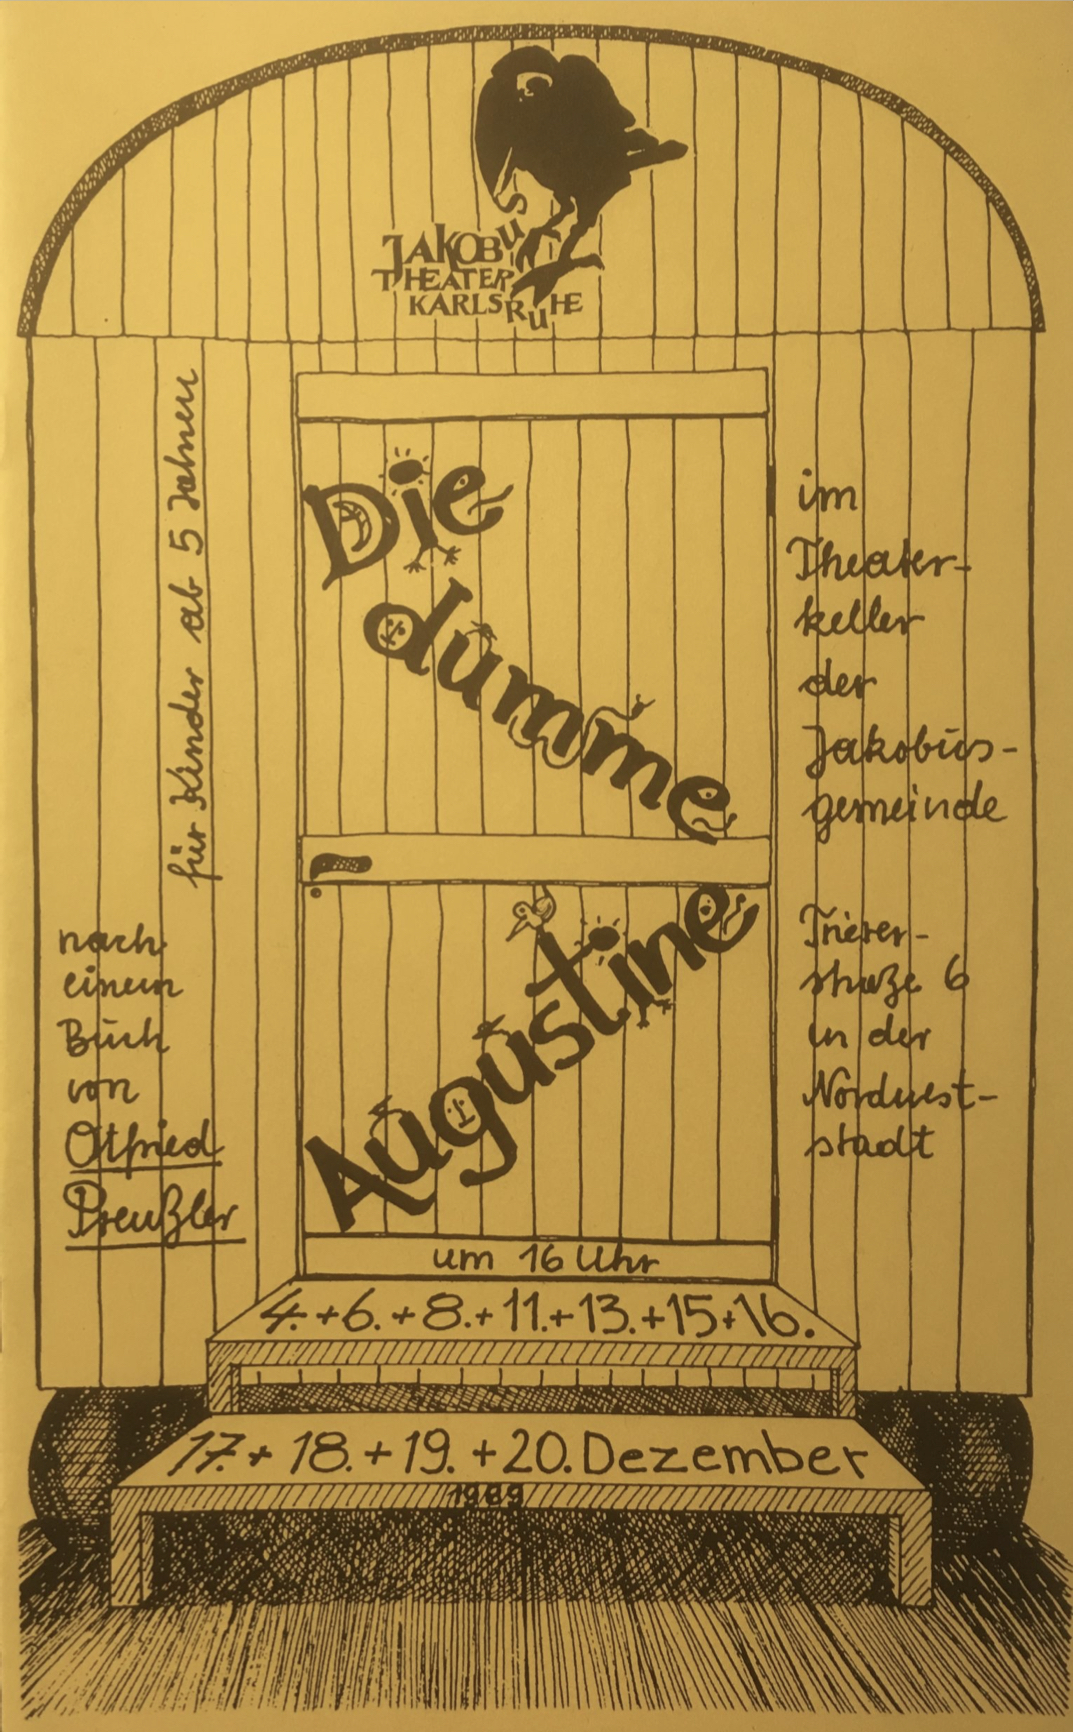 JAKOBUS
THEATER
KARLSRUHE
für Kinder ab 5 Jahren
Die
dumme
Augustine
nach
einem
Buch
von
Otfried
Preußler
im
Theater-
keller
der
Jakobus-
gemeinde
Trierer-
straße 6
in der
Nordwest-
stadt
um 16 Uhr
4.+6.+8.+11.+13.+15+16.
17.+18.+19.+20. Dezember
1989